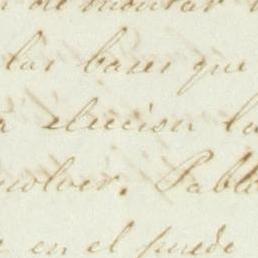 de montar
las bases que
eleccion la
solver. Pablo
en el puede